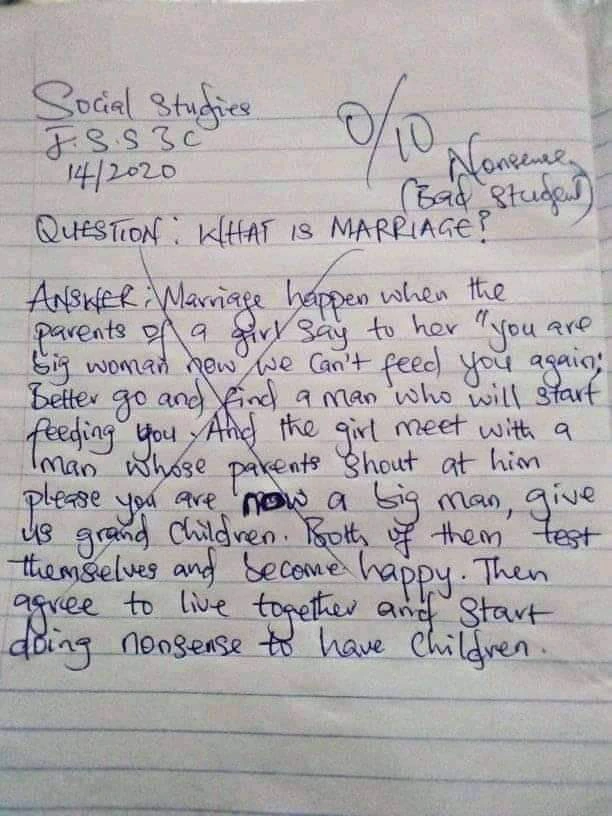 Social Studies
J.S.S 3C
14/2020
0/10
Nonsense
(Bad student)
QUESTION: WHAT IS MARRIAGE?
ANSWER: Marriage happen when the
parents of a girl say to her "you are
big woman now we can't feed you again;
Better go and find a man who will start
feeding you. And the girl meet with a
man whose parents shout at him
please you are now a big man, give
us grand children. Both of them test
themselves and become happy. Then
agree to live together and start
doing nonsense to have children.